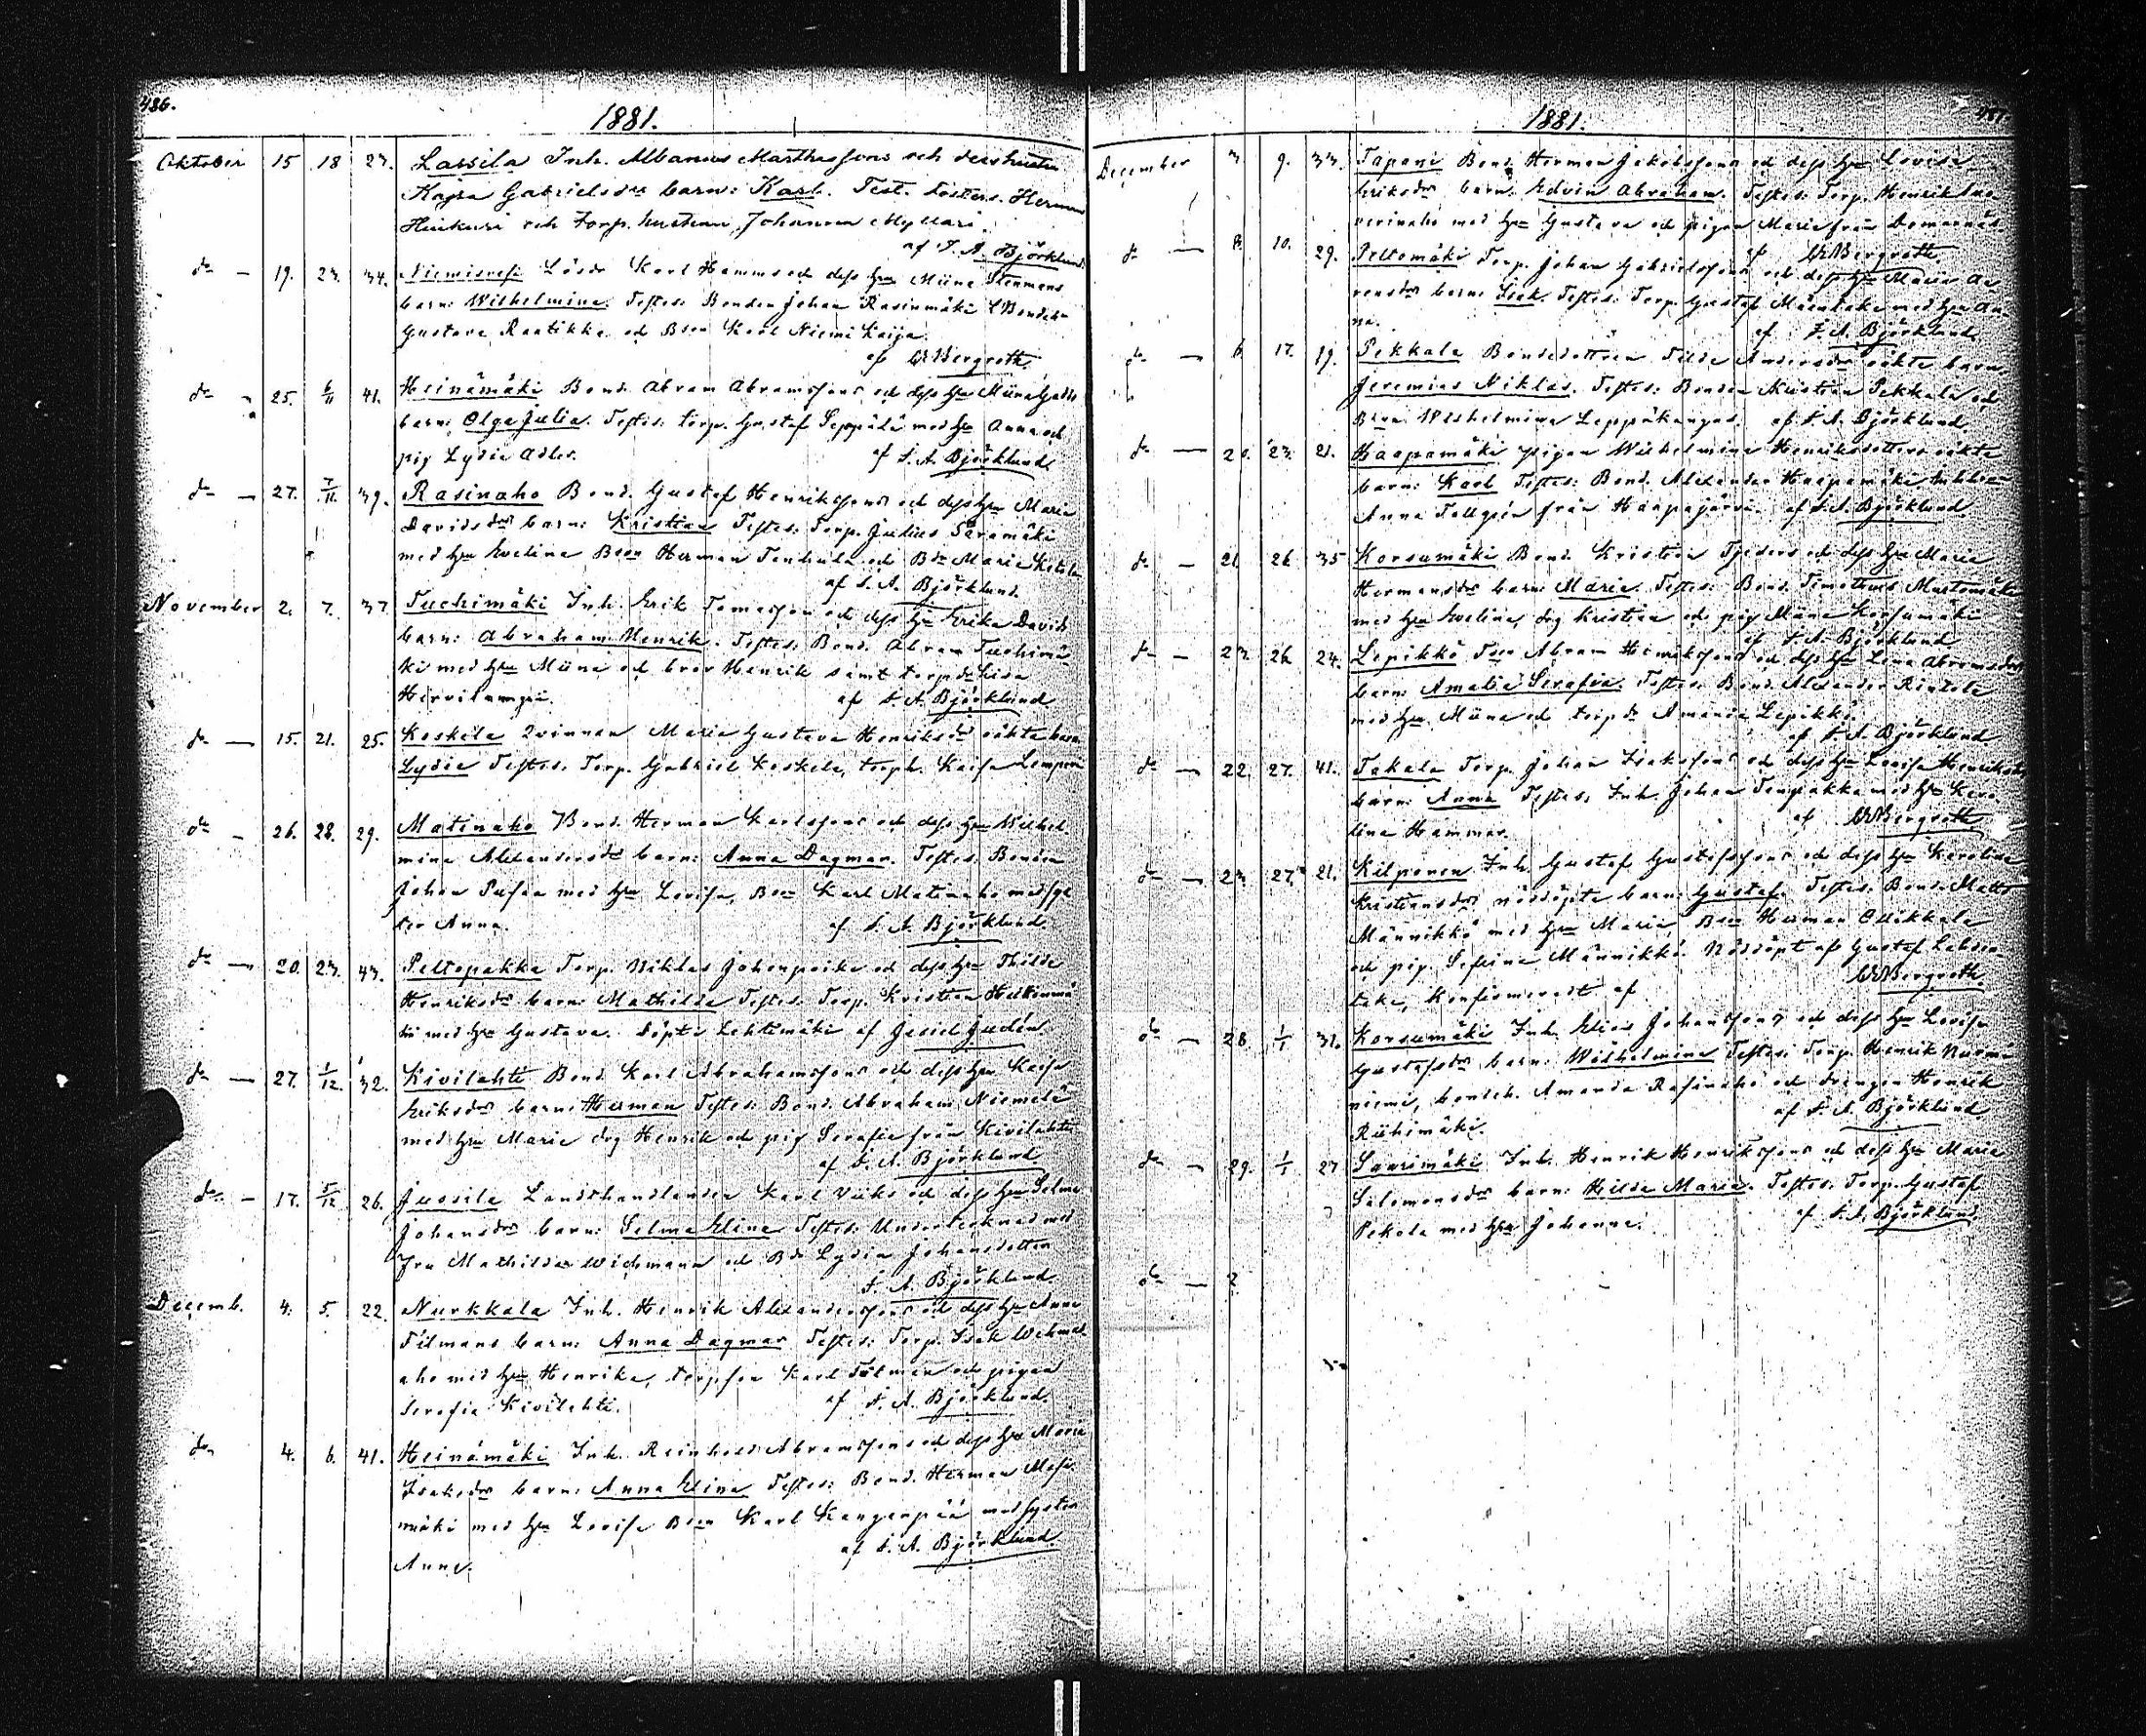 486.
1881.
Oktober 15 18 23. Lassila Inh. Albanus Matthssons och dess hustru
Kajsa Gabrielsdr barn: Karl. Test. Herman
Heikuri och Torp. hustrun Johanna Myllari.
af F. A. Björklund.
do — 19. 23. 34. Niemisvesi Karl Hammar och dess hu Miina Stenmans
barn: Wilhelmina. Testes: Bonden Johan Rasinmäki
Gustava Raatikka och Bson Karl Niemi Kaija.
af Bergroth.
do — 25. 6/11 41. Heinämäki Bond. Abram Abramssons och dess hu Miina
barn: Olga Julia. Testes: torp. Gustaf Seppälä med hu Anna och
pig Lydia Adler. af F. A. Björklund.
do — 27. 7/11. 39. Rasinaho Bond. Gustaf Henrikssons och dess hu Maria
Davidsdr barn: Kristian Testes: Torp. Julius Saramäki
med hu Evelina Bson Herman Tenhula och Bdr Maria
af F. A. Björklund.
November 2. 7. 37. Tuchimäki Inh. Erik Tomasson och dess hu Erika Davids
barn: Abraham Henrik. Testes: Bond. Abram Tuchimä
ki med hu Miina och bror Henrik samt torpdr Lisa
Hervilampi. af F. A. Björklund
do — 15. 21. 25. Koskela Qvinnan Maria Gustava Henriksdr oäkta barn
Lydia Testes. Torp. Gabriel Koskela, torph. Kaisa
do — 26. 28. 29. Matinaho Bond. Herman Karlssons och dess hu Wilhel-
mina Alexandersdr barn: Anna Dagmar. Testes. Bonden
Johan med hu Lovisa, Bson Karl Matinaho med sys
ter Anna. af F. A. Björklund
do — 20. 23. 43. Peltopakka Torp. Niklas Johanpoika och dess hu Thilda
Henriksdr barn: Mathilda Testes: Torp. Kristian
ki med hu Gustava. Döpt i Lehtimäki af Judén
do — 27. 1/12. 32. Kivilahti Bond. Karl Abrahamssons och dess hu Kaisa
Eriksdr barn: Herman Testes: Bond. Abraham Niemelä
med hu Maria drg Henrik och pig Serafia från Kivilahti
af F. A. Björklund
do — 17. 5/12 26. Juosila Landthandlanden Karl och dess hu Selma
Johansdr barn: Selma Elina Testes: Undertecknad med
Fru Mathilda Wichmann och Bdr Lydia Johansdotter
F. A. Björklund
Decemb. 4. 5. 22. Nurkkala Inh. Henrik Alexanderssons och dess hu Anna
Tilmans barn: Anna Dagmar Testes: Torp. Isak
aho med hu Henrika, torpson Karl Tilman och pigan
Serafia Kivilahti. af F. A. Björklund.
do 4. 6. 41. Heinämäki Inh. Reinhold Abramssons och dess hu Maria
Isaksdr barn: Anna Elina Testes: Bond. Herman
mäki med hu Lovisa Bson Karl Kangenpää med syster
Anna. af F. A. Björklund.
1881.
December 3. 9. 33. Tapani Bond. Herman Jakobssons och dess hu Lovisa
Eriksdr barn: Edvin Abraham. Testes: Torp. Henrik
med hu Gustava och pigan Maria från
af Bergroth
do — 8. 10. 29. Peltomäki Torp. Johan Gabrielssons och dess hu Maria
barn: Isak. Testes: Torp. Gustaf med hu An-
na. af F. A. Björklund
do — 6. 17. 19. Pekkala Bondedottren Tilda Andersdr oäkta barn
Jeremias Niklas. Testes: Bonden Kristian Pekkala och
Wilhelmina Leppäkangas. af F. A. Björklund.
do — 20. 23. 21. Haapamäki pigan Wilhelmina Henriksdotters oäkta
barn: Karl Testes: Bond. Alexander Haapamäki
Anna Tallgren från Haapajärvi. af F. A. Björklund
do — 21. 26 35 Korsumäki Bond. Kristian och dess hu Maria
Hermansdr barn: Maria Testes: Bond. Timotheus Mustamäki
med hu Evelina, drg Kristian och pig Miina Korsumäki
af F. A. Björklund
do — 23. 26. 24. Lepikkö Abram Henrikssons och dess hu Lena Abramsdr
barn: Amalia Serafia. Testes: Bond. Alexander Rintala
med hu Miina och torpdr Amanda Lepikkö.
af F. A. Björklund
do — 22. 27. 41. Takala Torp. Johan Isakssons och dess hu Lovisa Henriksdr
barn: Anna Testes: Inh. Johan med hu Karo-
lina Hammar. af Bergroth
do — 23. 27. 21. Kilponen Inh. Gustaf Gustafssons och dess hu Karolina
Kristiansdr nöddöpta barn: Gustaf. Testes: Bond. Matts
Männikkö med hu Maria, Bson Herman Ollikkala
och pig. Sefina Männikkö. Nöddöpt af Gustaf
Konfirmerat af Bergroth.
do — 28. 1/1 31. Korsumäki Inh. Elias Johanssons och dess hu Lovisa
Gustafsdr barn: Wilhelmina Testes: Torp. Henrik Nurmi-
niemi, Amanda Rasinaho och drengen Henrik
Riihimäki. af F. A. Björklund
do — 29. 1/1 27 Saarimäki Inh. Henrik Henrikssons och dess hu Maria
Salomonsdr barn: Hilda Maria. Testes: Torp. Gustaf
Pekola med hu Johanna. af F. A. Björklund.
do — 2